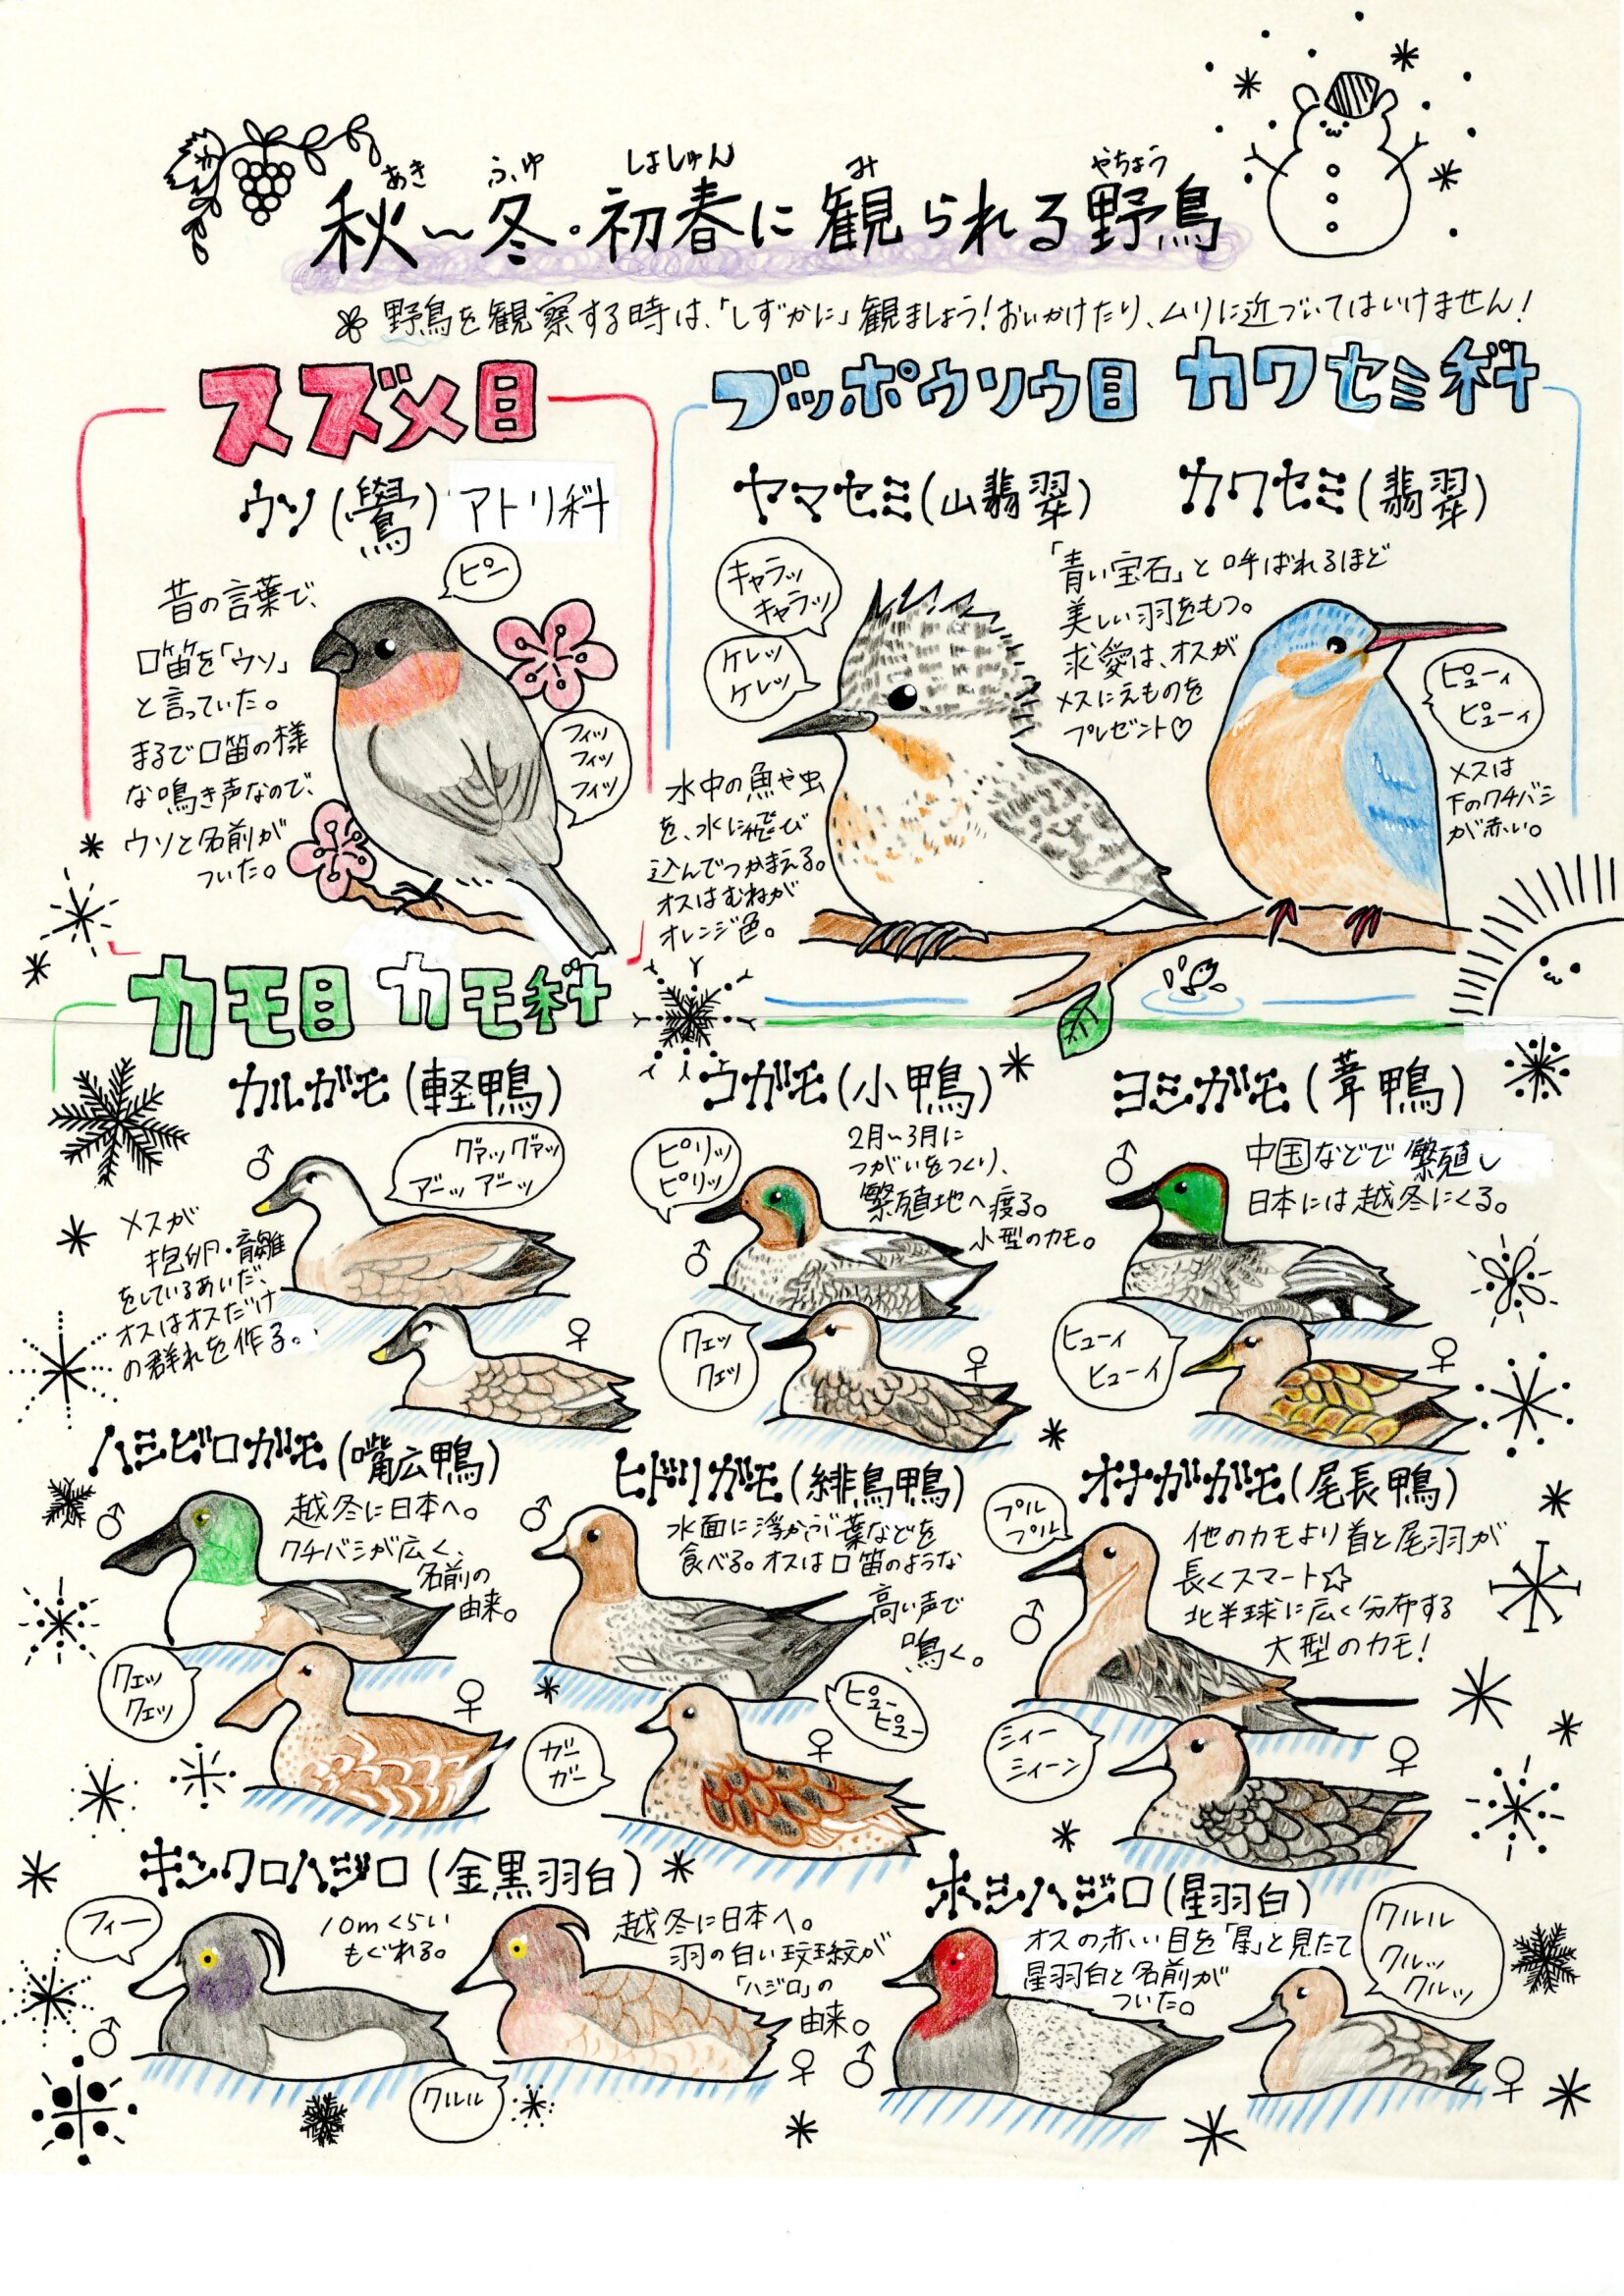 あき ふゆ しょしゅん み やちょう
秋〜冬・初春に観られる野鳥
野鳥を観察する時は、「しずかに」観ましょう!おいかけたり、ムリに近づいてはいけません!
スズメ目
ウソ(鷽)アトリ科
ピー
昔の言葉で、
口笛を「ウソ」
と言っていた。
まるで口笛の様
な鳴き声なので、
ウソと名前が
ついた。
フィッ
フィッ
フィッ
ブッポウソウ目 カワセミ科
ヤマセミ(山翡翠)
キャラッ
キャラッ
ケレッ
ケレッ
水中の魚や虫
を、水に飛び
込んでつかまえる。
オスはむねが
オレンジ色。
カワセミ(翡翠)
「青い宝石」と呼ばれるほど
美しい羽をもつ。
求愛は、オスが
メスにえものを
プレゼント♡
ピューィ
ピューィ
メスは
下のクチバシ
が赤い。
カモ目 カモ科
カルガモ(軽鴨)
♂
グァッグァッ
アーッ アーッ
メスが
抱卵・育雛
をしているあいだ、
オスはオスだけ
の群れを作る。
♀
コガモ(小鴨)
ピリッ
ピリッ
♂
2月〜3月に
つがいをつくり、
繁殖地へ渡る。
小型のカモ。
クェッ
クェッ
♀
ヨシガモ(葦鴨)
♂
中国などで繁殖し
日本には越冬にくる。
ヒューィ
ヒューイ
♀
ハシビロガモ(嘴広鴨)
♂
越冬に日本へ。
クチバシが広く、
名前の
由来。
クェッ
クェッ
♀
ヒドリガモ(緋鳥鴨)
♂
水面に浮かぶ葉などを
食べる。オスは口笛のような
高い声で
鳴く。
ピュー
ピュー
ガー
ガー
♀
オナガガモ(尾長鴨)
プル
プル
♂
他のカモより首と尾羽が
長くスマート☆
北半球に広く分布する
大型のカモ!
シィー
シィーン
♀
キンクロハジロ(金黒羽白)
フィー
10mくらい
もぐれる。
♂
越冬に日本へ。
羽の白い紋が
「ハジロ」の
由来。
クルルル
♀
ホシハジロ(星羽白)
オスの赤い目を「星」と見たて
星羽白と名前が
ついた。
♂
クルルル
クルッ
クルッ
♀